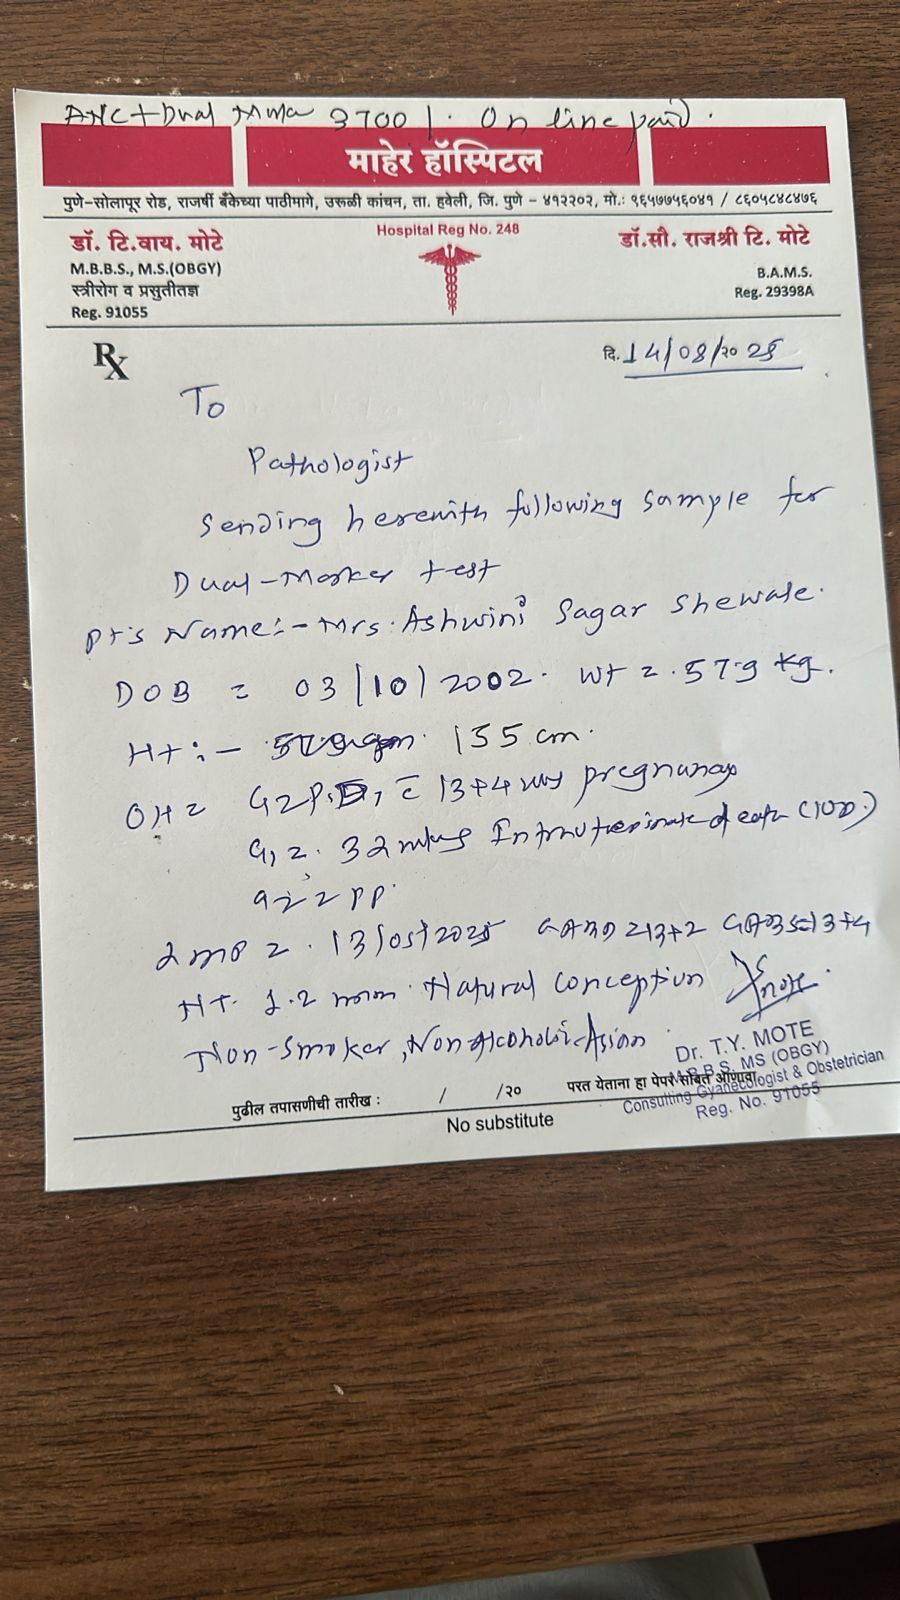 ANC + Dual Marker 3700/. On line paid.
माहेर हॉस्पिटल
पुणे-सोलापूर रोड, राजर्षी बँकेच्या पाठीमागे, उरूळी कांचन, ता. हवेली, जि. पुणे - ४१२२०२, मो.: ९६५७७५६०४१ / ८६०५८४८४७६
Hospital Reg No. 248
डॉ. टि.वाय. मोटे
M.B.B.S., M.S.(OBGY)
स्त्रीरोग व प्रसुतीतज्ञ
Reg. 91055
डॉ.सौ. राजश्री टि. मोटे
B.A.M.S.
Reg. 29398A
Rx
दि. 14/08/२० 25
To
Pathologist
Sending herewith following sample for
Dual-Marker test
Pt's Name:- Mrs. Ashwini Sagar Shewale.
DOB = 03/10/2002. Wt = 57.9 kg.
Ht:- 155 cm.
OH = G2P1D1 c̄ 13+4 wks pregnancy
G1 = 32 wks Intrauterine death (IUD)
G2 = PP.
LMP = 13/05/2025 GA 13+2 GA 13+4
NT. 1.2 mm. Natural conception
Non-smoker, Non alcoholic Asian
Dr. T.Y. MOTE
M.B.B.S, MS (OBGY)
Consulting Gyanecologist & Obstetrician
Reg. No. 91055
पुढील तपासणीची तारीख : / /२० परत येताना हा पेपर सोबत आणावा
No substitute